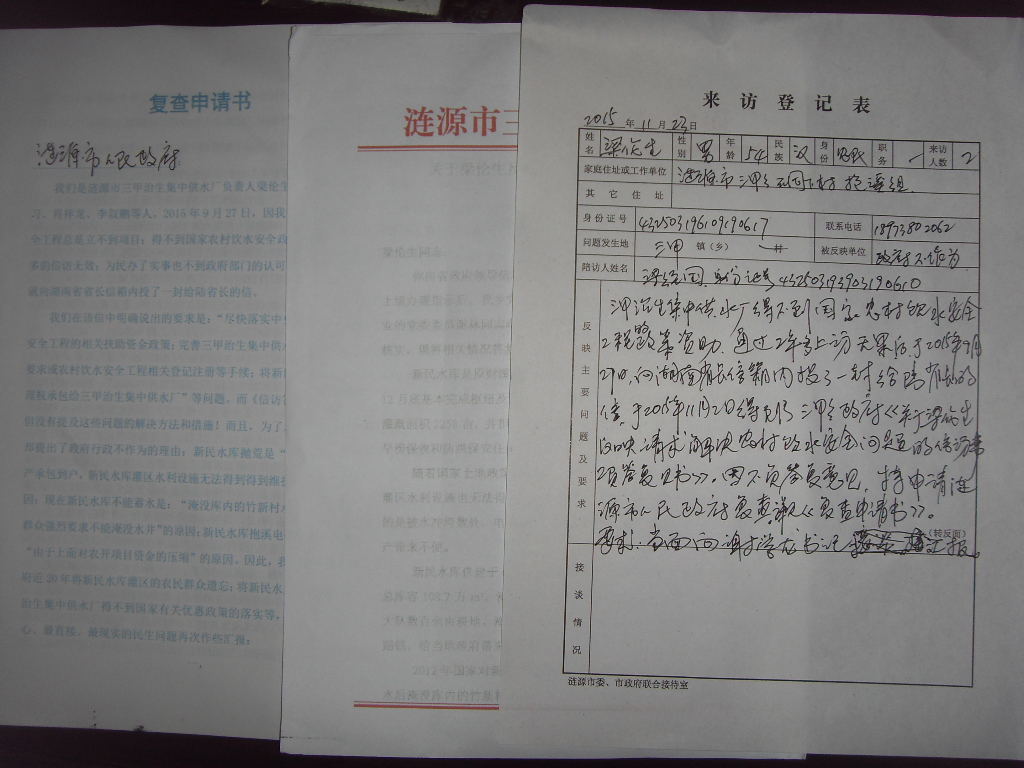 复查申请书
涟源市人民政府
我们是涟源市三甲治生集中供水厂负责人梁伦生
习、肖祥龙、李叙鹏等人，2015年9月27日，因我
全工程总是立不到项目；得不到国家农村饮水安全政
多的信访无效；为民办了实事也不到政府部门的认可
就向湖南省省长信箱内投了一封给陆省长的信。
我们在该信中明确说出的要求是：“尽快落实中
安全工程的相关扶助资金政策；完善三甲治生集中供水
要求或农村饮水安全工程相关登记注册等手续；将新
理权承包给三甲治生集中供水厂”等问题，而《信访
但没有提及这些问题的解决方法和措施！而且，为了
却提出了政府行政不作为的理由：新民水库抛荒是“
产承包到户，新民水库灌区水利设施无法得到得到维
因；现在新民水库不能蓄水是：“淹没库内的竹新村
群众强烈要求不能淹没水井”的原因；新民水库抱溪电
“由于上面对农开项目资金的压缩”的原因。因此，我
府近20年将新民水库灌区的农民群众遗忘；将新民水
治生集中供水厂得不到国家有关优惠政策的落实等，
心、最直接、最现实的民生问题再次作些汇报：
涟源市三
关于梁伦生
梁伦生同志：
新民水库是原
12月底基本完成枢纽
灌溉面积2250亩，
随着国家土地政
六带来不便。
新民水库位于
总库容108.7万m³，
2012年国家对新
水后淹没库内的竹
来访登记表
2015年11月23日
姓名 梁伦生 性别 男 年龄 54 民族 汉 身份 农民 职务 来访人数 2
家庭住址或工作单位 涟源市三甲乡 村 组
其它住址
身份证号 432503196109190617 联系电话 18973802062
问题发生地 三甲 镇（乡） 一 村 被反映单位 政府不作为
陪访人姓名 身份证号 432503193903190610
反映主要问题及要求
三甲治生集中供水厂得不到国家农村饮水安全
工程政策资助，通过2年多上访无果后，于2015年9月
27日，向湖南省长信箱内投了一封给陆省长的
信，于2015年11月2日得到了三甲乡政府《关于梁伦生
反映请求解决农村饮水安全问题的信访事
项答复书》，因不服答复意见，特申请涟
源市人民政府复查该《复查申请书》。
要求：当面向谢学龙书记 汇报
（转反面）
接谈情况
涟源市委、市政府联合接待室